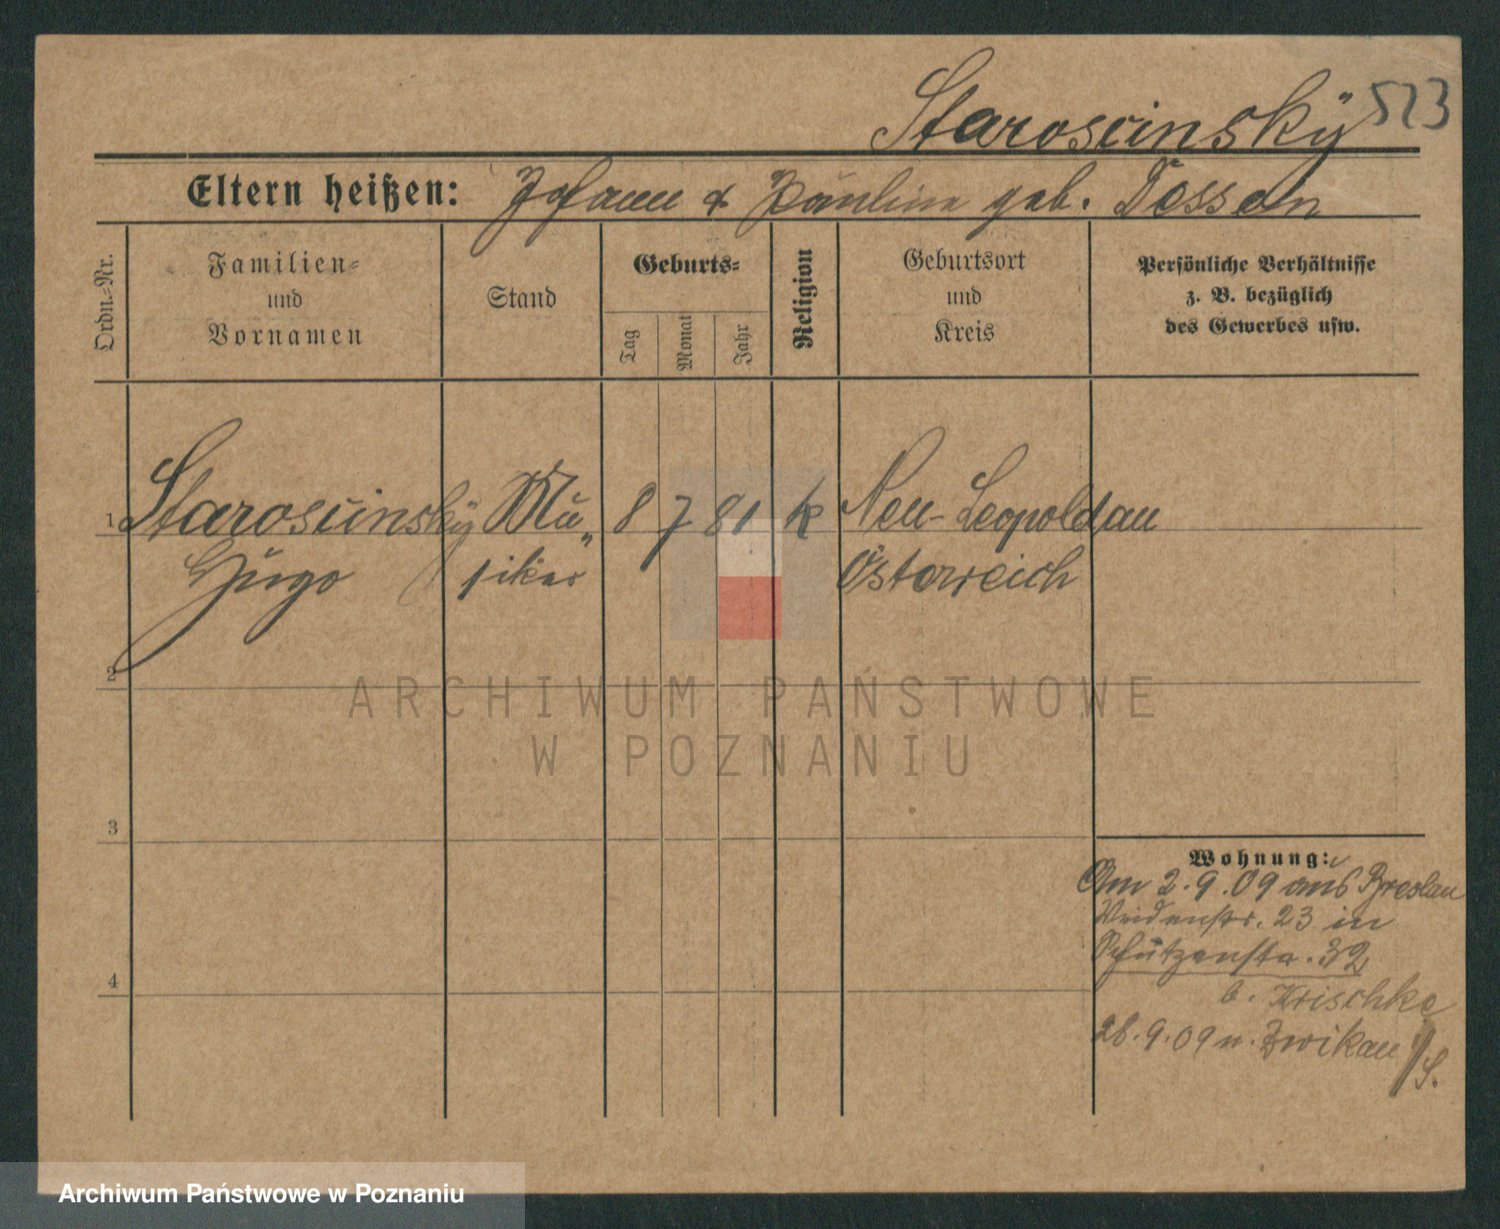 Starosćinský 523
Eltern heißen: Johann & Pauline geb. Dessen
Ordn.-Nr.
Familien-
und
Vornamen
Stand
Geburts-
Tag
Monat
Jahr
Religion
Geburtsort
und
Kreis
Persönliche Verhältnisse
z. B. bezüglich
des Gewerbes usw.
1 Starosćinský Mu„ 8 7 81 k Neu-Leopoldau
Hugo siker Österreich
2
ARCHIWUM PAŃSTWOWE
W POZNANIU
3
Wohnung:
Am 2.9.09 aus Breslau
Weidenstr. 23 in
Schützenstr. 32
b. Krischke
28.9.09 n. Zwikau
S.
4
Archiwum Państwowe w Poznaniu